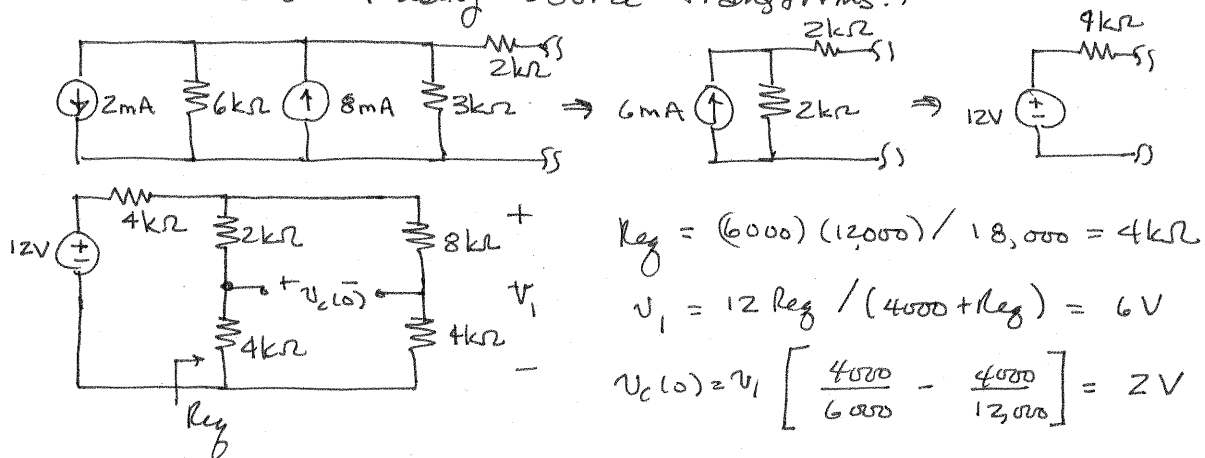 using source transforms:
2mA 6kΩ 8mA 3kΩ 2kΩ ⇒ 6mA 2kΩ 2kΩ ⇒ 12V 4kΩ
12V 4kΩ 2kΩ 8kΩ +
+ v_c(0) - v_1
4kΩ 4kΩ -
Req
Req = (6000)(12,000)/18,000 = 4kΩ
v_1 = 12 Req / (4000 + Req) = 6V
v_c(0) = v_1 [ 4000/6000 - 4000/12,000 ] = 2V